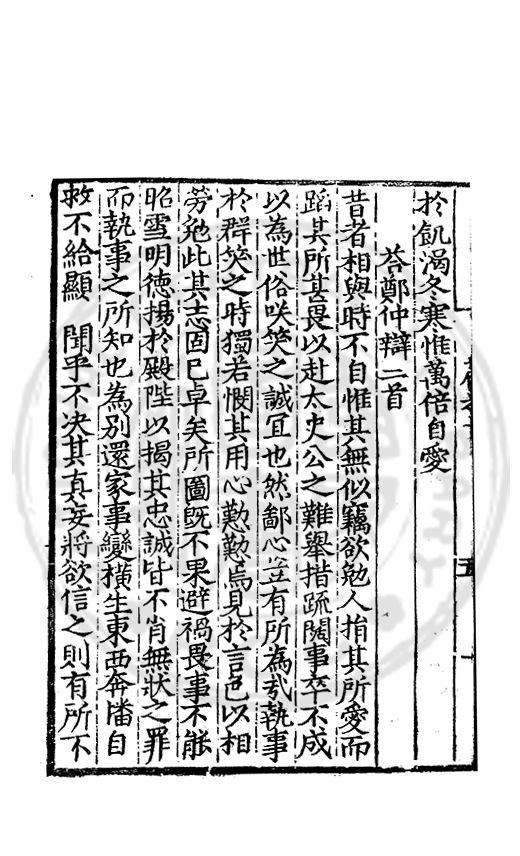 於飢渴冬寒惟萬倍自愛
荅鄭仲辯二首
昔者相與時不自惟其無似竊欲勉人捐其所愛而
蹈其所甚畏以赴太史公之難舉措疏闊事卒不成
以為世俗咲笑之誠宜也然鄙心豈有所為㢤執事
於群笑之時獨若憫其用心懃懃焉見於言色以相
勞勉此其志固已卓矣所圖既不果避禍畏事不能
昭雪明德揚於殿陛以揭其忠誠皆不肖無狀之罪
而執事之所知也為別還家事變橫生東西奔墦自
救不給顯 聞乎不决其真妄將欲信之則有所不
五